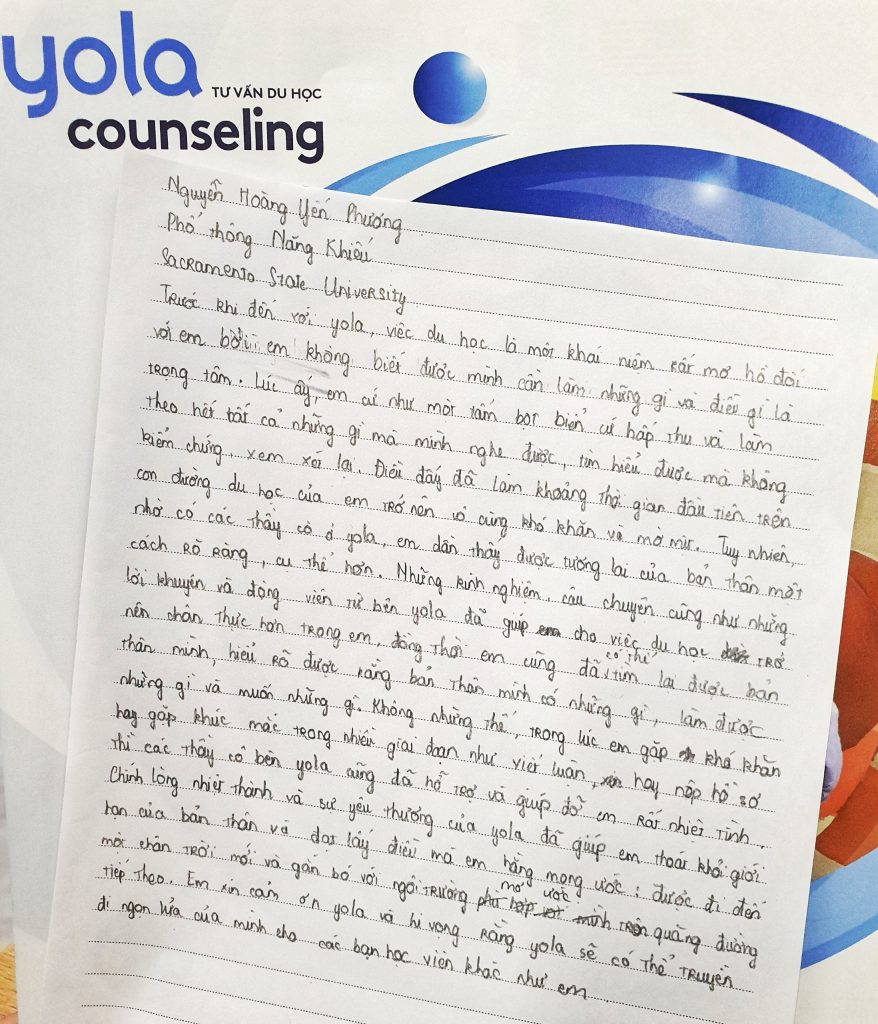 yola
TƯ VẤN DU HỌC
counseling
Nguyễn Hoàng Yến Phương
Phổ thông Năng Khiếu
Sacramento State University
Trước khi đến với yola, việc du học là một khái niệm rất mơ hồ đối
với em bởi em không biết được mình cần làm những gì và điều gì là
trọng tâm. Lúc ấy, em cứ như một tấm bọt biển cứ hấp thu và làm
theo hết tất cả những gì mà mình nghe được, tìm hiểu được mà không
kiểm chứng, xem xét lại. Điều đấy đã làm khoảng thời gian đầu tiên trên
con đường du học của em trở nên vô cùng khó khăn và mờ mịt. Tuy nhiên,
nhờ có các thầy cô ở yola, em dần thấy được tương lai của bản thân một
cách rõ ràng, cụ thể hơn. Những kinh nghiệm, câu chuyện cũng như những
lời khuyên và động viên từ bên yola đã giúp cho việc du học trở
nên chân thực hơn trong em, đồng thời em cũng đã có thể tìm lại được bản
thân mình, hiểu rõ được rằng bản thân mình có những gì, làm được
những gì và muốn những gì. Không những thế, trong lúc em gặp khó khăn
hay gặp khúc mắc trong nhiều giai đoạn như viết luận, hay nộp hồ sơ
thì các thầy cô bên yola cũng đã hỗ trợ và giúp đỡ em rất nhiệt tình.
Chính lòng nhiệt thành và sự yêu thương của yola đã giúp em thoát khỏi giới
hạn của bản thân và đạt lấy điều mà em hằng mong ước: được đi đến
một chân trời mới và gắn bó với ngôi trường mơ ước trên quãng đường
tiếp theo. Em xin cảm ơn yola và hi vọng rằng yola sẽ có thể truyền
đi ngọn lửa của mình cho các bạn học viên khác như em.